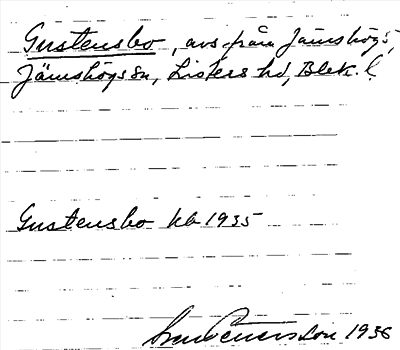 Gustensbo, avs. från Jämshögs,
Jämshögs sn, Listers hd, Blek. l.
Gustensbo kb 1935
1936